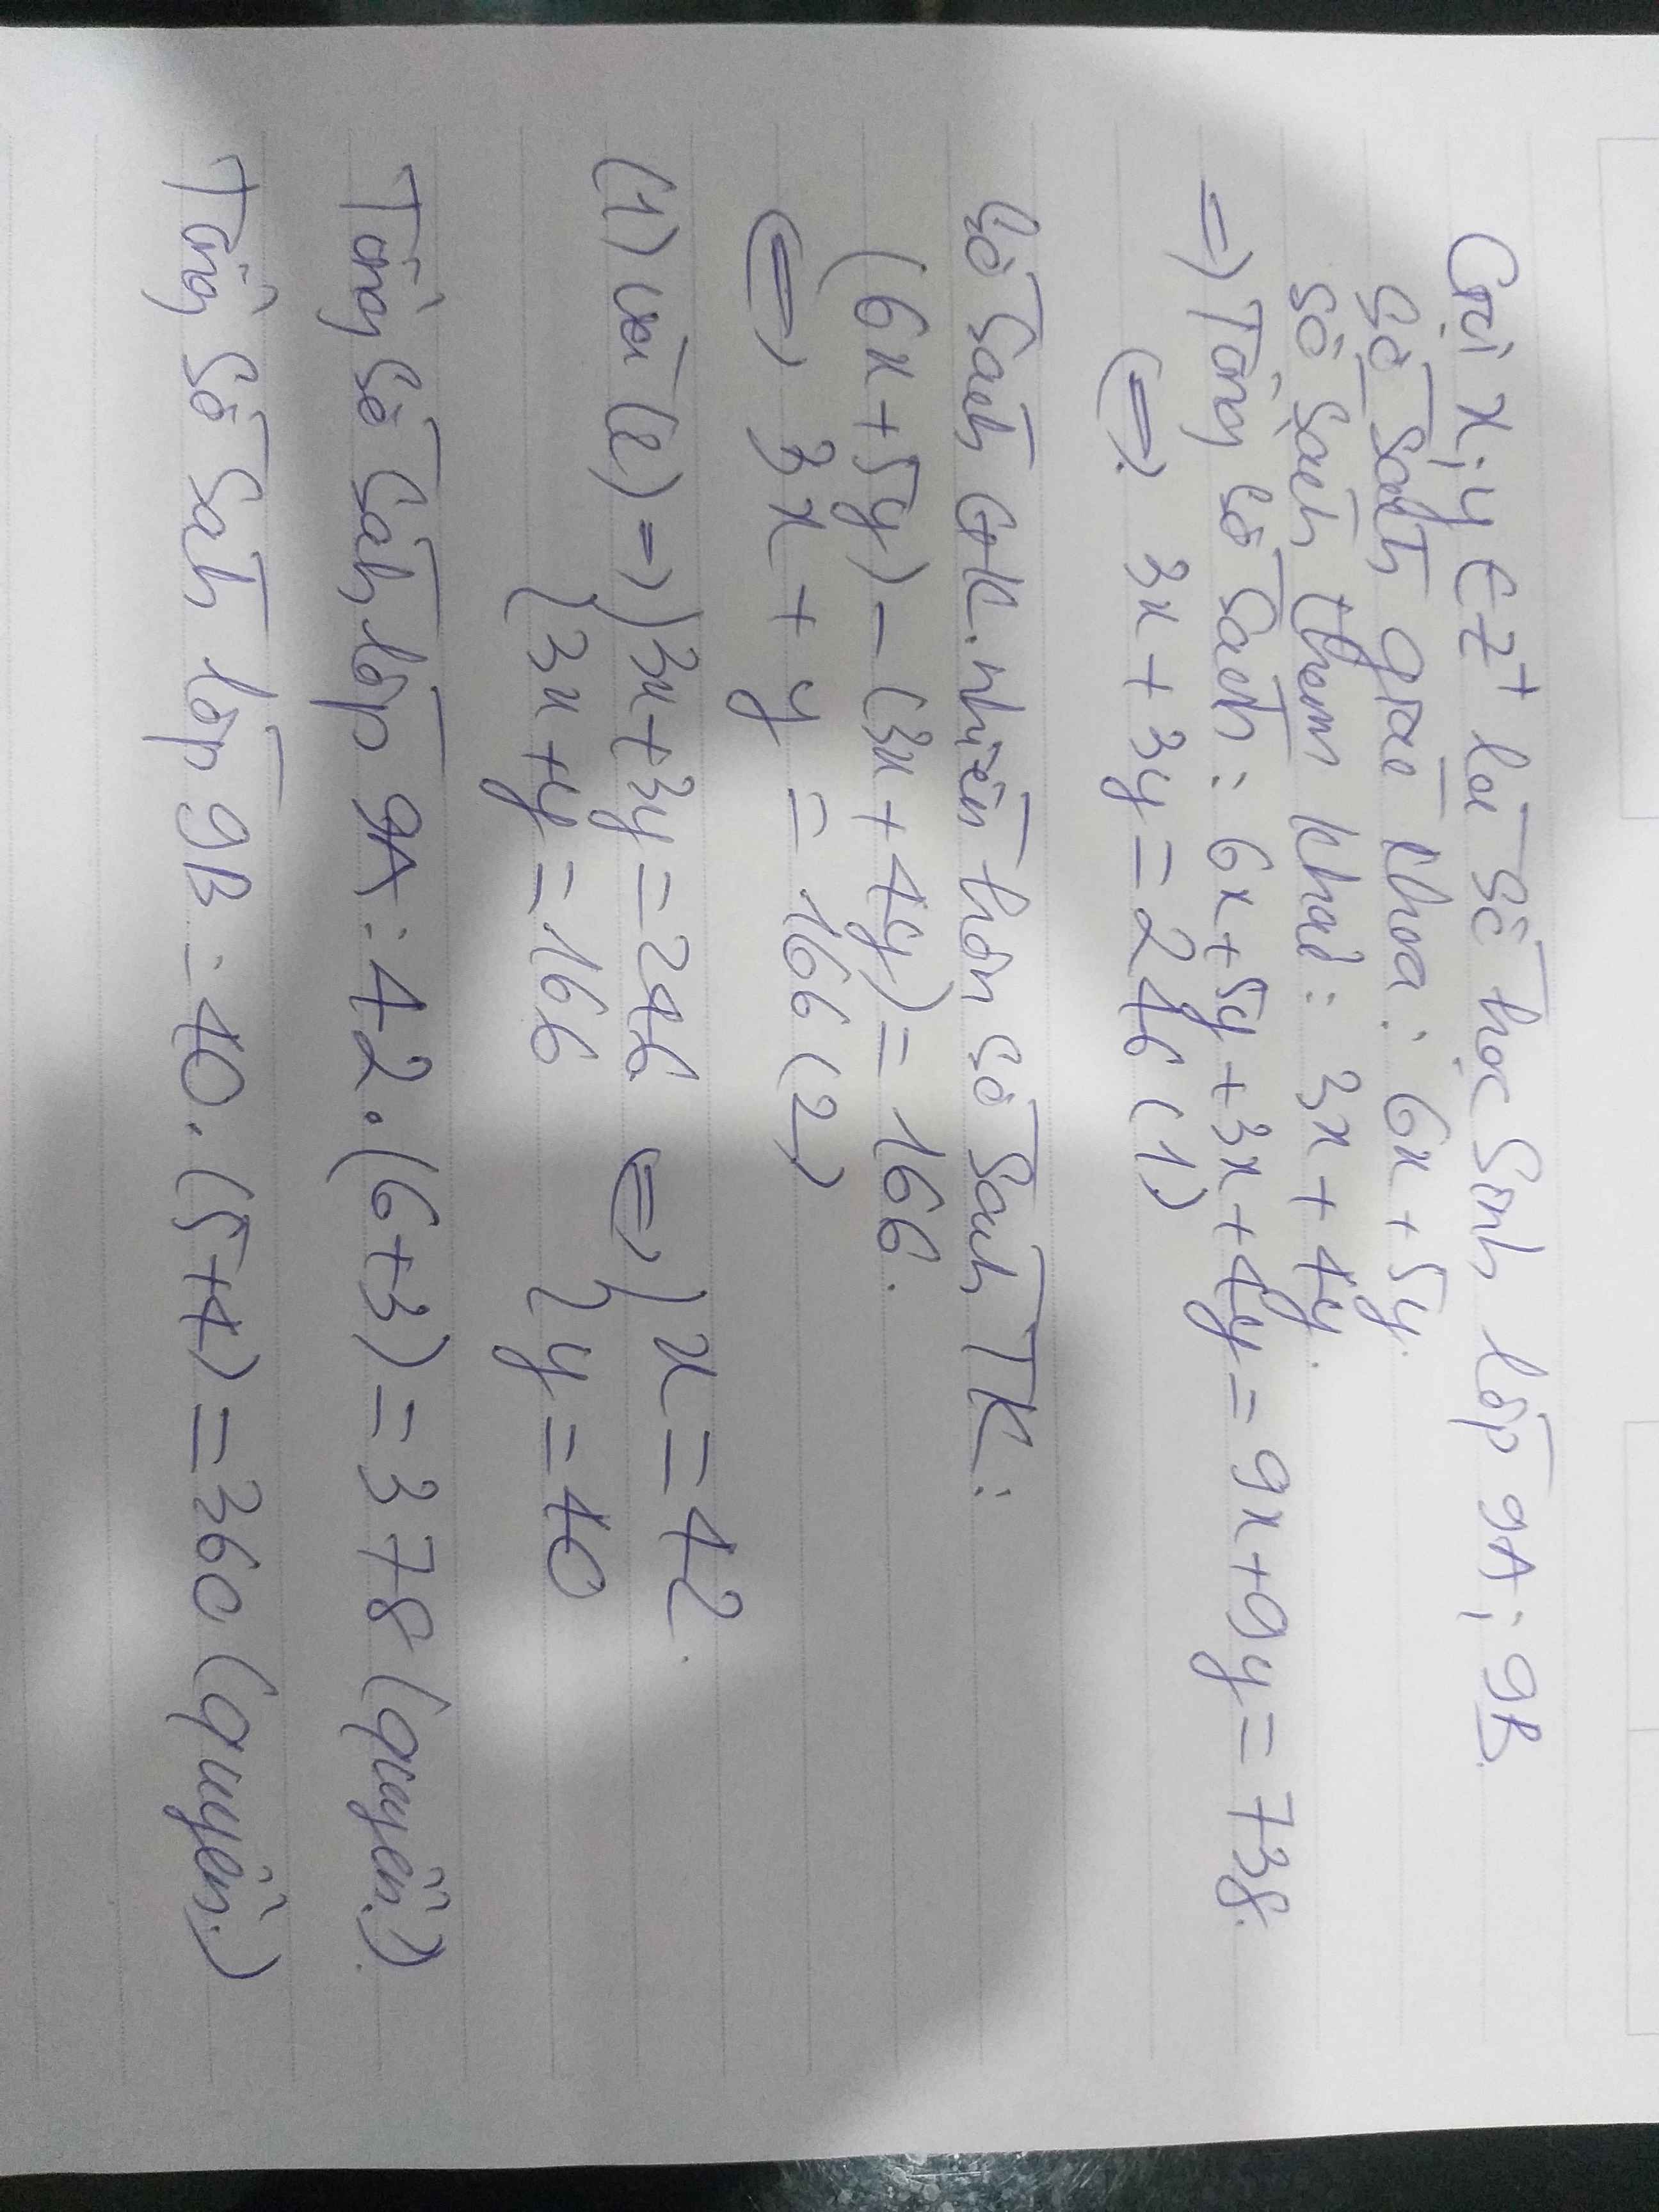 Gọi x; y ∈ Z⁺ là số học sinh lớp 9A; 9B.
Số sách giáo khoa: 6x + 5y.
Số sách tham khảo: 3x + 4y.
=> Tổng số sách: 6x + 5y + 3x + 4y = 9x + 9y = 738.
<=> 3x + 3y = 246 (1)
Số sách GK nhiều hơn số sách TK:
(6x + 5y) - (3x + 4y) = 166.
<=> 3x + y = 166 (2)
(1) và (2) => { 3x + 3y = 246 <=> { x = 42.
{ 3x + y = 166 { y = 40
Tổng số sách lớp 9A: 42.(6+3) = 378 (quyển)
Tổng số sách lớp 9B: 40.(5+4) = 360 (quyển)